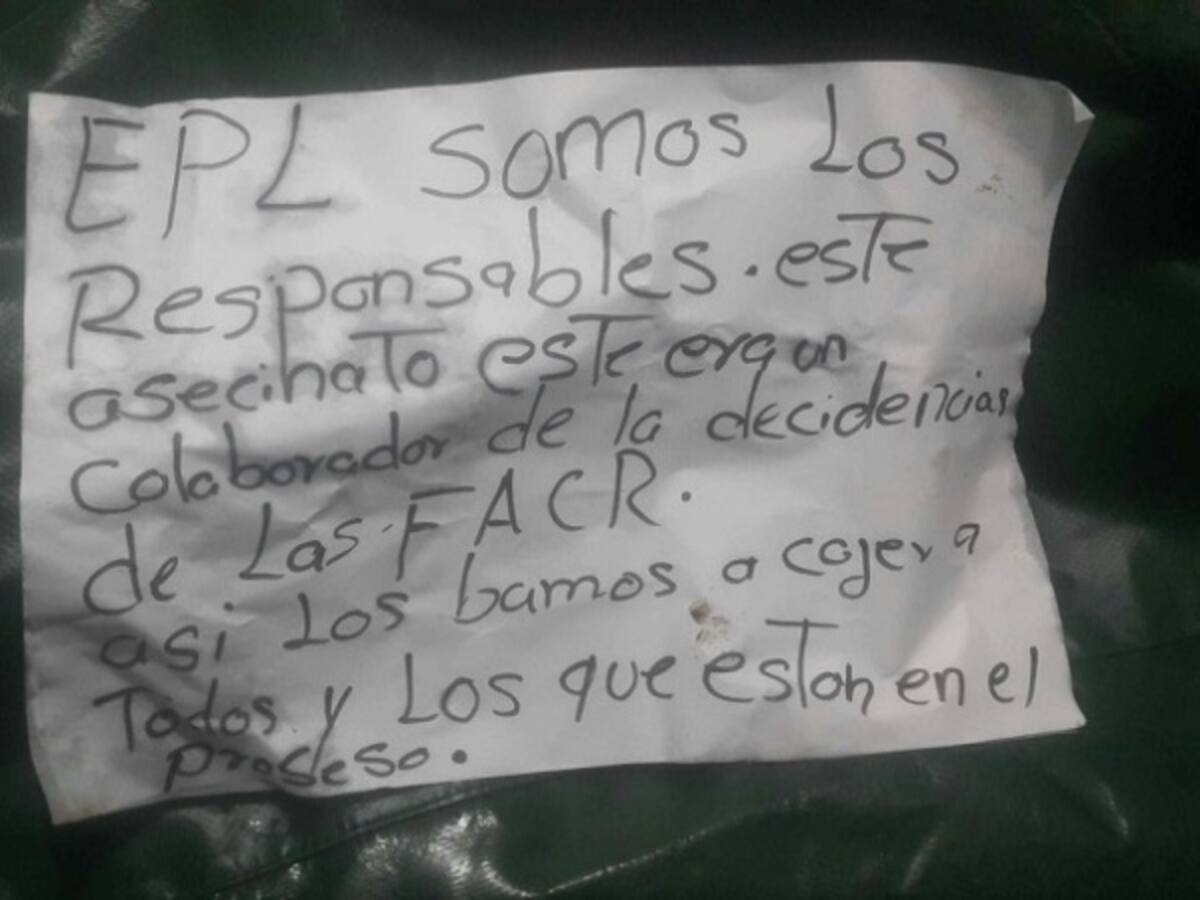 EPL somos Los
Responsables. este
asecinato este era un
colaborador de la decidencias
de Las. FACR.
asi Los bamos a cojer a
Todos y Los que estan en el
proseso.